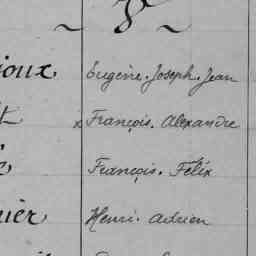 joux Eugène. Joseph. Jean
t x François. Alexandre
é François. Félix
nier Henri. Adrien